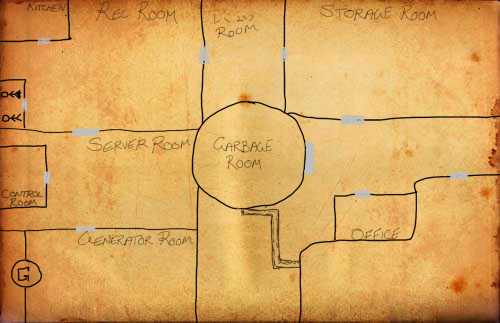 KITCHEN
REC ROOM
ROOM
STORAGE ROOM
SERVER ROOM
GARBAGE
ROOM
CONTROL
ROOM
GENERATOR ROOM
OFFICE
G